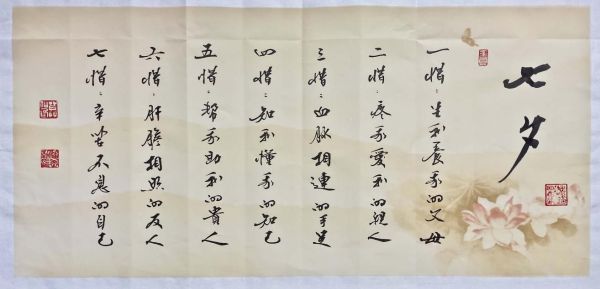 七夕
一惜：生我养我的父母
二惜：疼我爱我的親人
三惜：血脉相連的手足
四惜：知我懂我的知己
五惜：帮我助我的貴人
六惜：肝膽相照的友人
七惜：辛苦不息的自己